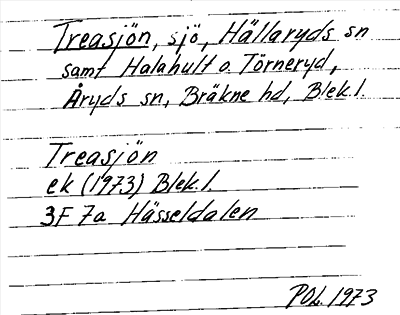 Treasjön, sjö, Hällaryds sn
samt Halahult o. Törneryd,
Åryds sn, Bräkne hd, Blek.l.
Treasjön
ek (1973) Blek.l.
3F 7a Hässeldalen
POL. 1973